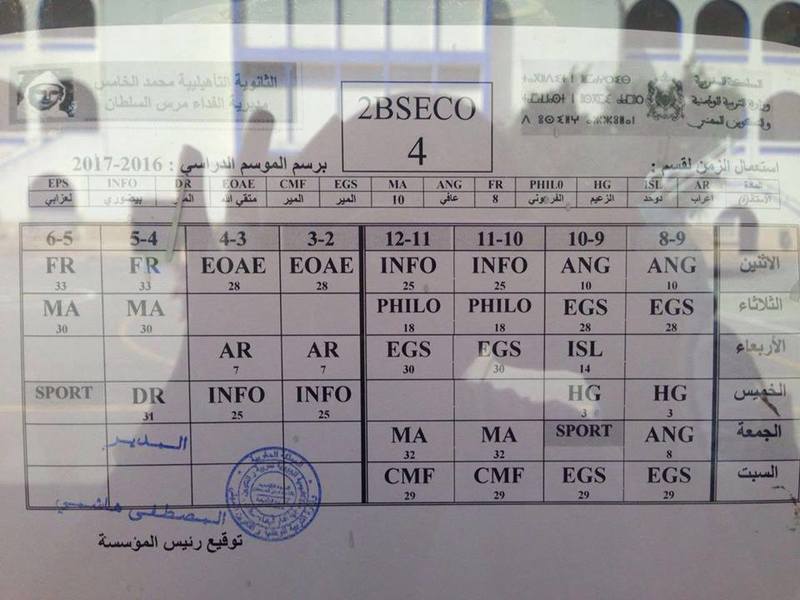 الثانوية التأهيلية محمد الخامس
مديرية الفداء مرس السلطان
2BSECO
4
المملكة المغربية
وزارة التربية الوطنية
والتكوين المهني
استعمال الزمن لقسم :
برسم الموسم الدراسي : 2016-2017
EPS INFO DR EOAE CMF EGS MA ANG FR PHILO HG ISL AR المادة
لعزابي بيضوري المير متقي الله المير المير 10 عافي 8 الزعيم دوحد اعراب
6-5 5-4 4-3 3-2 12-11 11-10 10-9 8-9
FR FR EOAE EOAE INFO INFO ANG ANG الاثنين
33 33 28 28 25 25 10 10
MA MA PHILO PHILO EGS EGS الثلاثاء
30 30 18 18 28 28
AR AR EGS EGS ISL الأربعاء
7 7 30 30 14
SPORT DR INFO INFO HG HG الخميس
31 25 25 3 3
MA MA SPORT ANG الجمعة
32 32 8
CMF CMF EGS EGS السبت
29 29 29 29
المدير
المصطفى هاشمي
توقيع رئيس المؤسسة